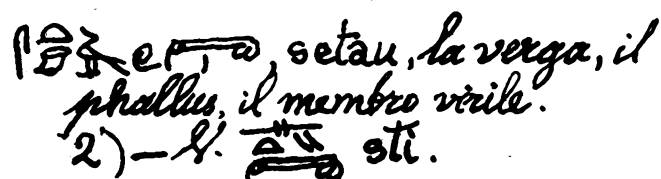 setau, la verga, il
phallus, il membro virile.
2) — V. sti.